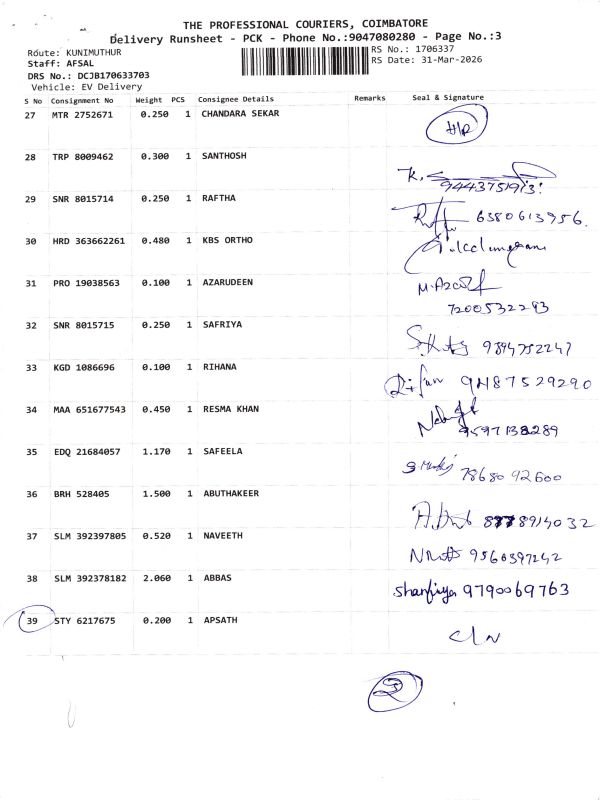 THE PROFESSIONAL COURIERS, COIMBATORE
Delivery Runsheet - PCK - Phone No.:9047080280 - Page No.:3
Route: KUNIMUTHUR RS No.: 1706337
Staff: AFSAL RS Date: 31-Mar-2026
DRS No.: DCJB170633703
Vehicle: EV Delivery
S No Consignment No Weight PCS Consignee Details Remarks Seal & Signature
27 MTR 2752671 0.250 1 CHANDARA SEKAR
28 TRP 8009462 0.300 1 SANTHOSH
9443751913
29 SNR 8015714 0.250 1 RAFTHA 6380613956
30 HRD 363662261 0.480 1 KBS ORTHO
31 PRO 19038563 0.100 1 AZARUDEEN
7200532293
32 SNR 8015715 0.250 1 SAFRIYA 9894752247
33 KGD 1086696 0.100 1 RIHANA 9487529290
34 MAA 651677543 0.450 1 RESMA KHAN
9597138289
35 EDQ 21684057 1.170 1 SAFEELA
7868092600
36 BRH 528405 1.500 1 ABUTHAKEER
37 SLM 392397805 0.520 1 NAVEETH 9560397242
38 SLM 392378182 2.060 1 ABBAS 9790069763
39 STY 6217675 0.200 1 APSATH